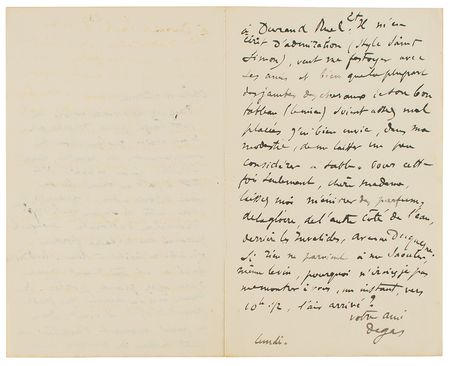 à Durand Ruel. Et il m'en
d'admiration (style Saint
Simon), veut me festoyer avec
ses amis et bien que la plupart
des jambes des chevaux de son bon
tableau (le mien) soient assez mal
placées, j'ai bien envie, dans ma
modestie, de me laisser un peu
considérer à table. Pour cette
fois seulement, chère madame,
laissez moi m'enivrer des parfums
de la gloire de l'autre côté de l'eau,
derrière les Invalides, avenue Duquesne.
Si rien ne parvient à me saouler,
même le vin, pourquoi n'irais-je pas
me montrer à vous, un instant, vers
10h 1/2, l'air arrivé?
votre ami
Degas
Lundi.